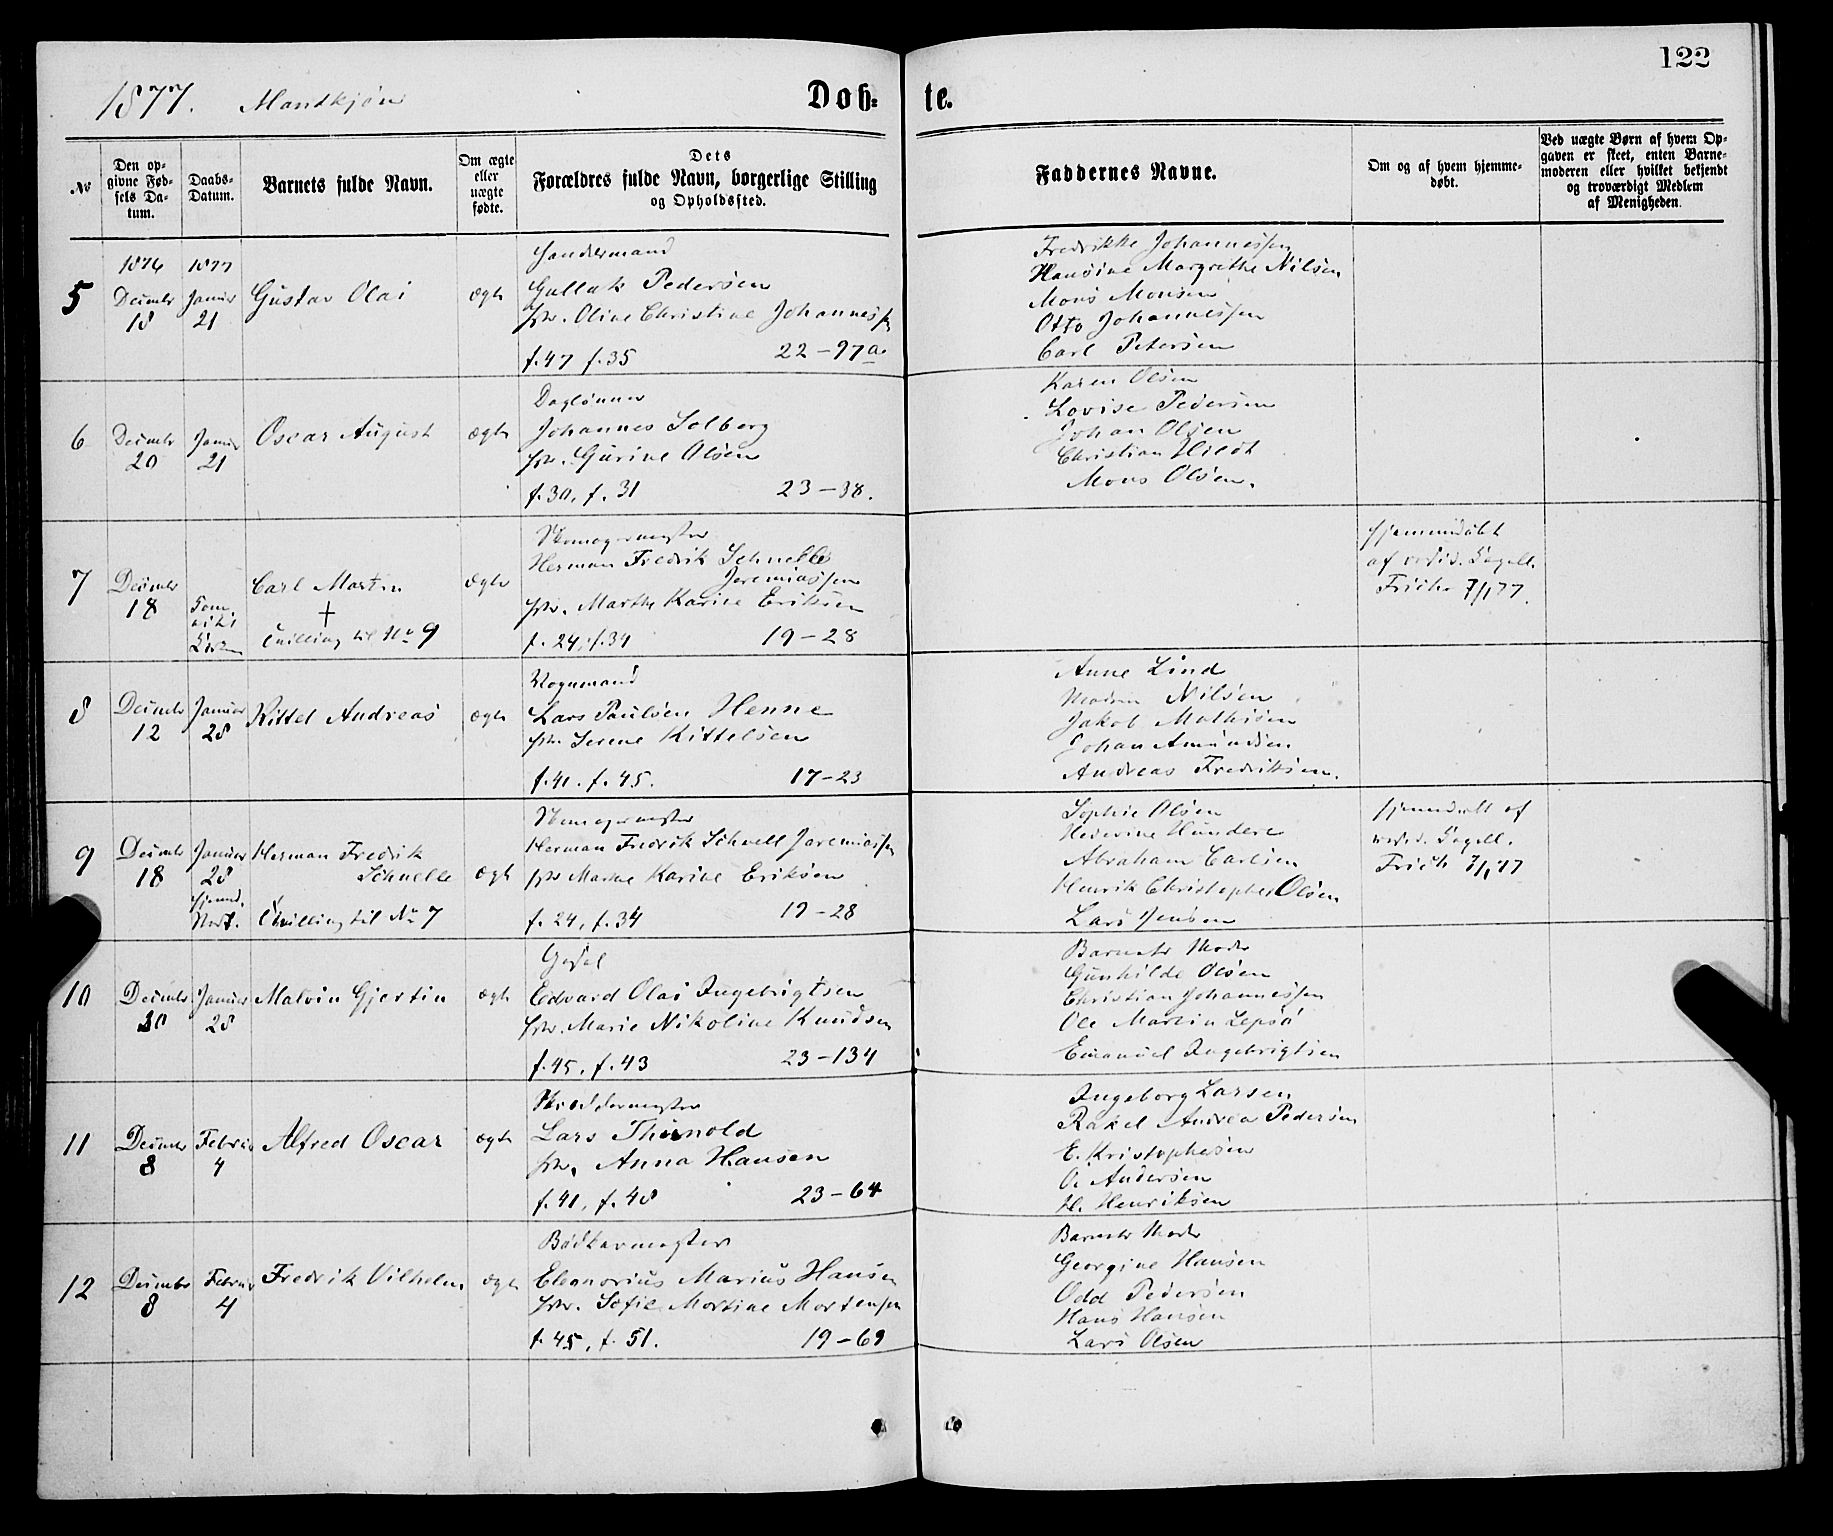 122
1877. Mandkjøn
Døb-
te.
No
Den op-
givne Fød-
sels Da-
tum.
Daabs-
Datum.
Barnets fulde Navn.
Om ægte
eller
uægte
fødte.
Dets
Forældres fulde Navn, borgerlige Stilling
og Opholdssted.
Faddernes Navne.
Om og af hvem hjemme-
døbt.
Ved uægte Børn af hvem Op-
gaven er skeet, enten Barne-
moderen eller hvilket bekjendt
og troværdigt Medlem
af Menigheden.
5
1876
Decmbr
18
1877
Januar
21
Gustav Olai
ægte
Sandermand
Gullak Pedersen
Olive Christine Johannessn
f. 47 f. 35 22-97a
Fredrikke Johannessen
Hansine Margrethe Nilsen
Mons Monsen
Otto Johannessen
Carl Petersen
6
Decmbr
20
Januar
21
Oscar August
ægte
Daglønner
Johannes Solberg
Gurine Olsen
f. 30, f. 31 23-38.
Karen Olsen
Lovise Pedersen
Johan Olsen
Christian Hildt
Mons Olsen.
7
Decmbr
18
Carl Martin
†
Tvilling til No 9
ægte
Skomagermester
Herman Fredrik Schnelle
Jeremiassen
Marthe Karine Eriksen
f. 24, f. 34 19-28
Hjemmedøbt
af
Frich 7/1 77.
8
Decmbr
12
Januar
28
Kittel Andreas
ægte
Vognmand
Lars Paulsen Henne
Serene Kittelsen
f. 41. f. 45. 17-23
Anne Lind
Nilsen
Jakob Mathisen
Johan Amundsen
Andreas Fredriksen.
9
Decmbr
18
Januar
28
Herman Fredrik
Schnelle
Tvilling til No 7
ægte
Skomagermester
Herman Fredrik Schnell Jeremiassn
Marthe Karine Eriksen
f. 24, f. 34 19-28
Sophie Olsen
Hundere
Abraham Carlsen
Henrik Christopher Olsen
Lars Jensen
Hjemmedøbt af
Frich 7/1 77
10
Decmbr
Januar
28
Malvin Gjertin
ægte
Edvard Olai Ingebrigtsen
Marie Nikoline Knudsen
f. 45, f. 43 23-134
Barnets Moder
Gunhilde Olsen
Christian Johannessen
Ole Martin Lepsø
Emanuel Ingebrigtsen
11
Decmbr
8
Februar
4
Alfred Oscar
ægte
Skræddermester
Lars Thunold
Anna Hansen
f. 41, f. 48 23-64
Ingeborg Larsen
Rakel Andrea Pedersen
E. Kristophersen
O. Andersen
H. Henriksen
12
Decmbr
8
Februar
4
Fredrik Vilhelm
ægte
Bødkermester
Eleonorius Marius Hansen
Sofie Mortine Mortensen
f. 45, f. 51. 19-69
Barnets Moder
Georgine Hansen
Odd Pedersen
Hans Hansen
Lars Olsen